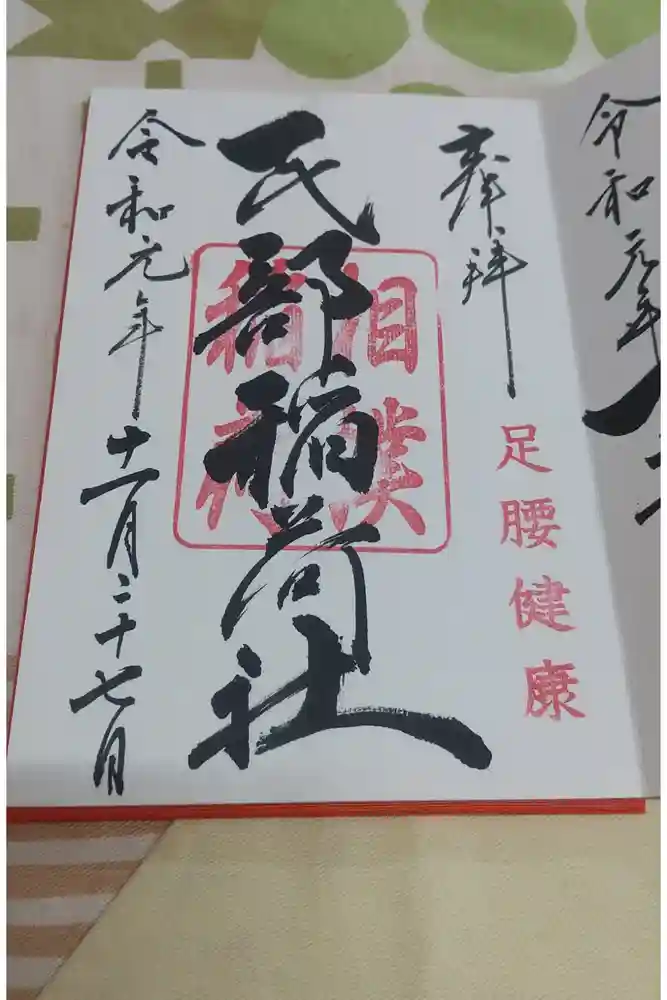 令和元年
奉拝
足腰健康
民部稲荷社
相撲
稲
令和元年十一月二十七日